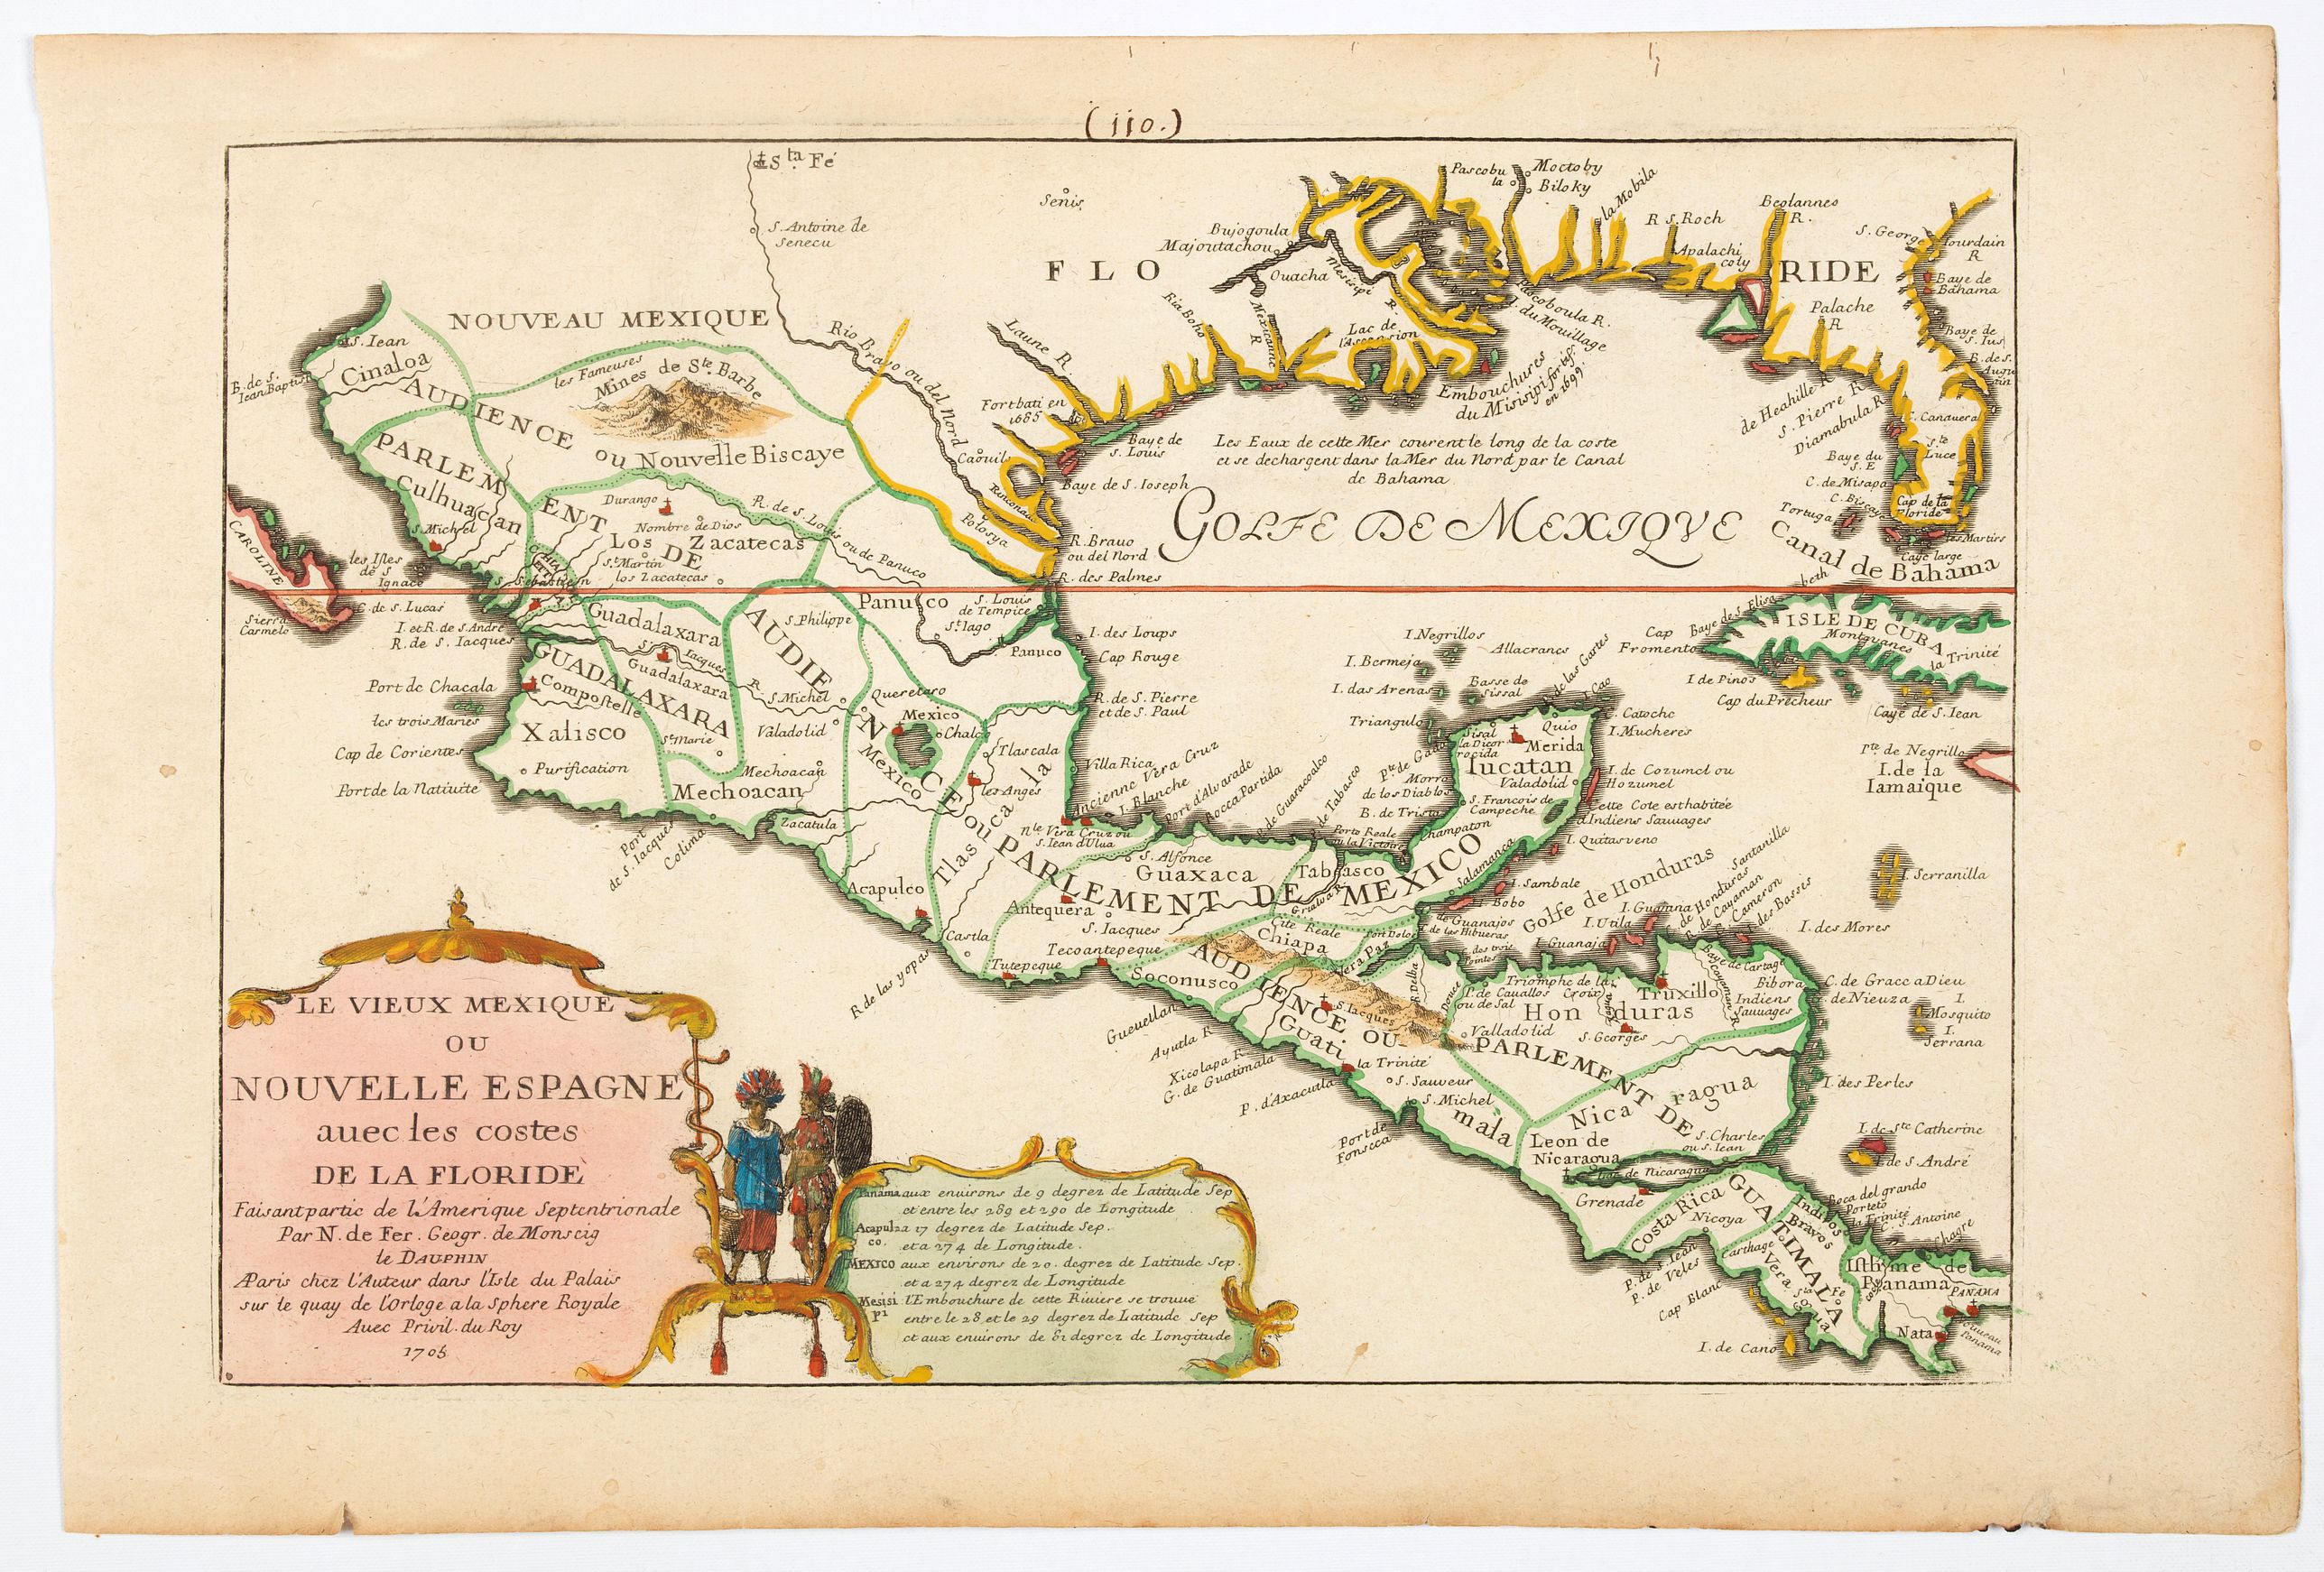 (110.)
Sta. Fé
S. Antoine de
Senecu
Senis
FLO
RIDE
NOUVEAU MEXIQUE
Rio Bravo ou del Nord
Pascobu
la
Moctoby
Biloky
la Mobila
R S. Roch
Beolannes
R.
Apalachi
coly
S. George
Iourdain
R
Baye de
Bahama
Palache
R
Bujogoula
Majoutachou
Ouacha
Mesisipi R.
Ria Boho
Mexicanne
R
Lac de
l'Ascension
Pascoboula R.
I. du Mouillage
Embouchures
du Misisipi fortifs.
en 1699.
Laune R
Fort bati en
1685
Baye de
S. Louis
Baye de S. Ioseph
Caouil
Polosya
R. Brauo
ou del Nord
R. des Palmes
Les Eaux de cette Mer courent le long de la coste
et se dechargent dans la Mer du Nord par le Canal
de Bahama
GOLFE DE MEXIQVE
de Heahille R
S. Pierre R
Diamabula R
Baye du
S. E
C. de Misapa
Tortuga
C. Canauera
Ste
Luce
Cap de la
Floride
les Martirs
Caye large
Canal de Bahama
S. Iean
B. de S.
Iean Baptist
Cinaloa
les Fameuses
Mines de Ste. Barbe
AUDIENCE
ou Nouvelle Biscaye
PARLEM
ENT
DE
Culhuacan
S. Michel
Durango
Nombre de Dios
Los Zacatecas
St. Martin
los Zacatecas
R. de S. Louis ou de Panuco
CAROLINE
Sierra
Carmelo
les Isles
de S
Ignace
C. de S. Lucas
I. et R. de S. André
R. de S. Iacques
Guadalaxara
GUADALAXARA
Guadalaxara
Compostelle
Xalisco
Purification
Port de Chacala
les trois Maries
Cap de Corientes
Port de la Natiuité
Port
de S. Iacques
Colima
AUDIE
N
CE OU PARLEMENT DE MEXICO
Panuco
S. Philippe
S. Louis
de Tempice
St. Iago
Panuco
I. des Loups
Cap Rouge
R. de S. Pierre
et de S. Paul
S. Michel
Queretaro
Valadolid
Ste Marie
Mechoacan
Mechoacan
Zacatula
Mexico
Chalc
Mexico
Tlascala
les Anges
Tlascala
Villa Rica
Ancienne Vera Cruz
I. Blanche
Port d'Alvarade
Rocca Partida
R. de Guasacoalco
R. de Tabasco
nle Vera Cruz ou
S. Iean d'Ulua
S. Alfonce
Guaxaca
Tabasco
Acapulco
Antequera
S. Iacques
Castla
Tutepeque
Tecoantepeque
R. de las yopas
I. Negrillos
Allacranes
I. Bermeja
I. das Arenas
Basse de
Sissal
Triangulo
R. de las Gartes
C. Catoche
I. Mucheres
Sisal
Quio
Merida
Iucatan
Valadolid
S. Francois de
Campeche
Morro
de los Diablos
B. de Trista
Porto Reale
ou la Victoire
Champaton
Salamanca
I. de Cozumel ou
Hozumel
Cette Cote est habitée
d'Indiens Sauuages
I. Quitasveno
I. Sambale
I. Bobo
Golfe de Honduras
Santanilla
I. Guajana
I. Utila
I. Guanaja
C. de Honduras
R. de Cayaman
C. Cameron
I. des Basses
Cap
Fromento
Baye de S. Elisa
beth
ISLE DE CUBA
Montagnes
la Trinité
I de Pinos
Cap du Precheur
Caye de S. Iean
Pte. de Negrille
I. de la
Iamaique
I. Serranilla
I. des Mores
C. de Grace a Dieu
R. de Nieuza
I.
Mosquito
I.
Serrana
I. des Perles
I. de Ste Catherine
I. de S. André
Cite Reale
Chiapa
Vera Paz
Soconusco
AUDIENCE OU
PARLEMENT DE
GUATIMALA
Guati
mala
S. Iacques
Gueuetlan
Ayutla R
Xicolapa R
G. de Guatimala
P. d'Axacutla
la Trinité
S. Sauveur
S. Michel
Port de
Fonseca
Triomphe de la
Croix
P. de Cauallos
ou de Sal
Truxillo
Honduras
Valladolid
S. Georges
Baye de Cartage
Bibora
Indiens
Sauuages
Nicaragua
Leon de
Nicaragua
S. Charles
ou S. Iean
Lac de Nicaragua
Grenade
Costa Rica
Nicoya
Carthage
Veragua
Sta Fe
Indios
Bravos
Boca del grando
Porteto
la Trinité
C. S. Antoine
Chagre
P. de S. Iean
P. de Veles
Cap Blanc
I. de Cano
Isthme de
Panama
PANAMA
Nouveau
Panama
Nata
LE VIEUX MEXIQUE
OU
NOUVELLE ESPAGNE
auec les costes
DE LA FLORIDE
Faisant partie de l'Amerique Septentrionale
Par N. de Fer. Geogr. de Monseig
le DAUPHIN
AParis chez l'Auteur dans l'Isle du Palais
sur le quay de l'Orloge a la Sphere Royale
Avec Privil. du Roy
1705
Panama aux enuirons de 9 degrez de Latitude Sep
et entre les 289 et 290 de Longitude
Acapul a 17 degrez de Latitude Sep.
co. et a 274 de Longitude.
MEXICO aux enuirons de 20. degrez de Latitude Sep.
et a 274 degrez de Longitude
Mesisi l'Embouchure de cette Riuiere se trouue
pi entre le 28 et le 29 degrez de Latitude Sep
et aux enuirons de 81 degrez de Longitude